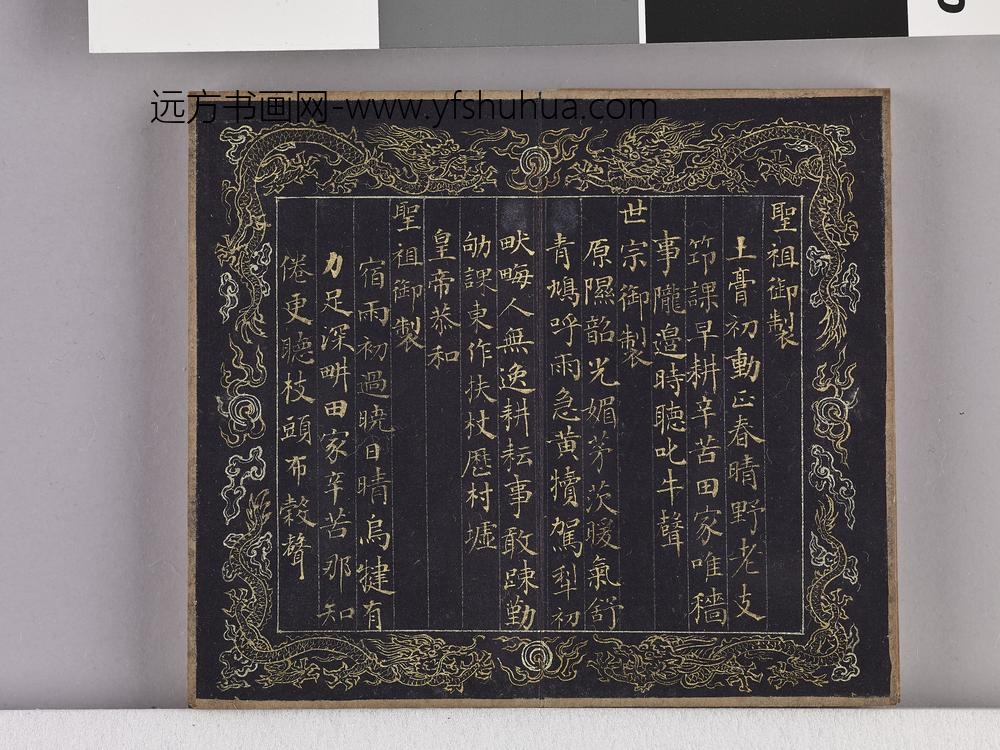 远方书画网-www.yfshuhua.com
聖祖御製
土膏初動正春晴野老支
筇課早耕辛苦田家唯穡
事隴邊時聽叱牛聲
世宗御製
原隰韶光媚茅茨暖氣舒
青鳩呼雨急黃犢駕犁初
畎畮人無逸耕耘事敢踈勤
劬課東作扶杖歷村墟
皇帝恭和
聖祖御製
宿雨初過曉日晴烏犍有
力足深畊田家辛苦那知
倦更聽枝頭布穀聲